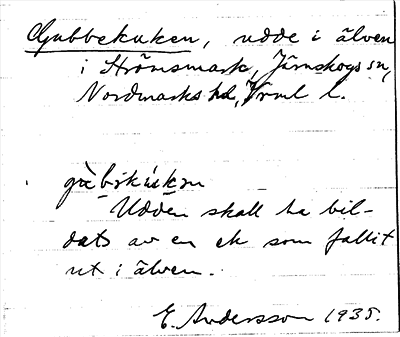 Gubbekuken, udde i älven
i Strömsmark, Järnskogs sn,
Nordmarks hd, Vrml l.
Udden skall ha bil-
dats av en ek som fallit
ut i älven.
E. Andersson 1935.